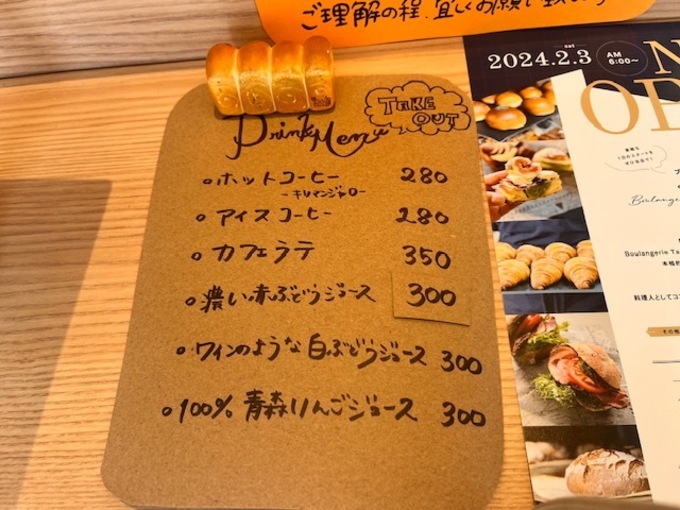 ご理解の程、宜しくお願い致します
TAKE OUT
Drink Menu
ホットコーヒー 280
-キリマンジャロ-
アイスコーヒー 280
カフェラテ 350
濃い赤ぶどうジュース 300
ワインのような白ぶどうジュース 300
100% 青森りんごジュース 300
2024.2.3 sat AM 6:00~
Boulangerie Ta
料理人としてコ
その他